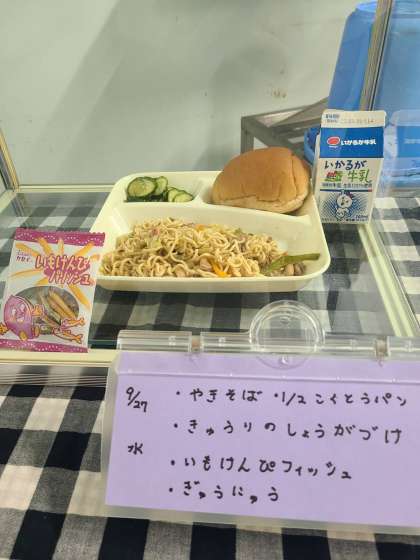 いかるが牛乳
いかるが
牛乳
カセイの
いもけんぴ
フィッシュ
9/27
水
・やきそば ・1/2こくとうパン
・きゅうりのしょうがづけ
・いもけんぴフィッシュ
・ぎゅうにゅう